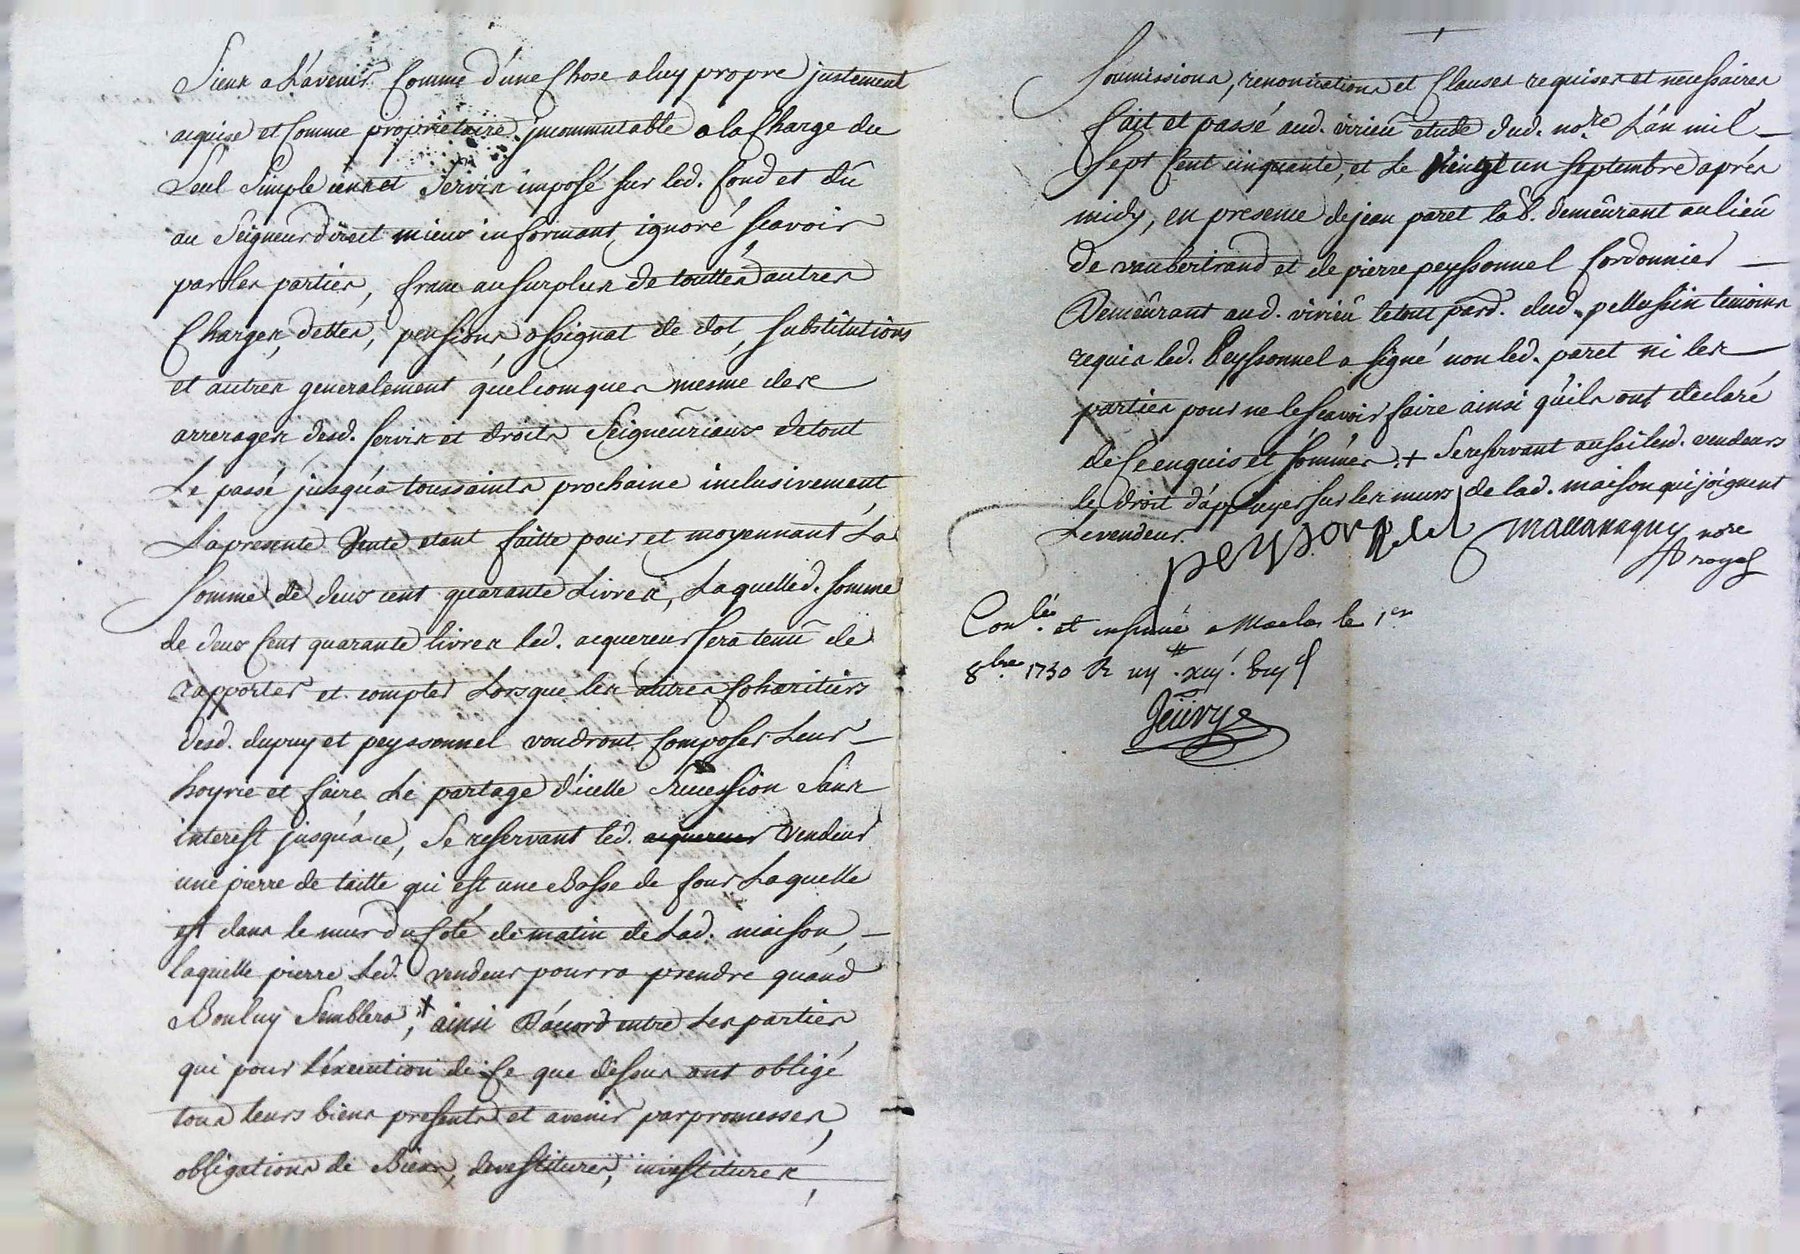 Siens a L'avenir Comme d'une Chose a luy propre justement
acquise et Comme proprietaire jncommutable a la Charge du
Seul Simple cens et Servis imposé sur led. fond et dû
au Seigneur direct mieux informant ignoré scavoir
par les parties, franc au surplus de touttes autres
Charges, dettes, pensions, assignat de dot, substitutions
et autres generalement quelconques mesme des
arrerages desd. servis et droits Seigneuriaux de tout
Le passé jusqu'a toussaints prochaine inclusivement
La presente Vente etant faitte pour et moyennant La
somme de deux cent quarante Livres, Laquelled. somme
de deux Cent quarante livres led. acquereur sera tenu de
rapporter et compter Lorsque les autres Coheritiers
desd. dupuy et peyssonnel voudront Composer Leur
hoyrie et faire Le partage d'icelle Sucession Sans
interest jusqu'a ce, Se reservant led. acquereur vendeur
une pierre de taille qui est une Basse de four Laquelle
est dans le mur du Coté de matin de Lad. maison,
laquelle pierre Led. vendeur pourra prendre quand
Bon luy Semblera, + ainsi D'acord entre Les parties
qui pour L'éxecution de Ce que dessus ont obligé
tous leurs biens presents et avenir par promesses,
obligations de Biens, devestitures, investitures,
soumissions, renonciations et Clauses requises et necessaires
fait et passé aud. virieu etude dud. nore. L'an mil
Sept Cent cinquante, et Le Vingt un Septembre aprés
midy, en presence de jean paret lab. demeurant au lieu
de vaubertrand et de pierre peyssonnel Cordonnier
Demeurant aud. virieu le tout pard. dud. pellussin temoins
requis led. Peyssonnel a signé non led. paret ni les
parties pour ne le scavoir faire ainsi qu'ils ont declaré
de Ce enquis et sommés. + Se reservant aussi led. vendeurs
le droit d'appuyer sur les murs de lad. maison qui joignent
Le vendeur.
peyssonnel
nore
royal
Conlé. et insinué a Maclas le 1er
8bre. 1750 R